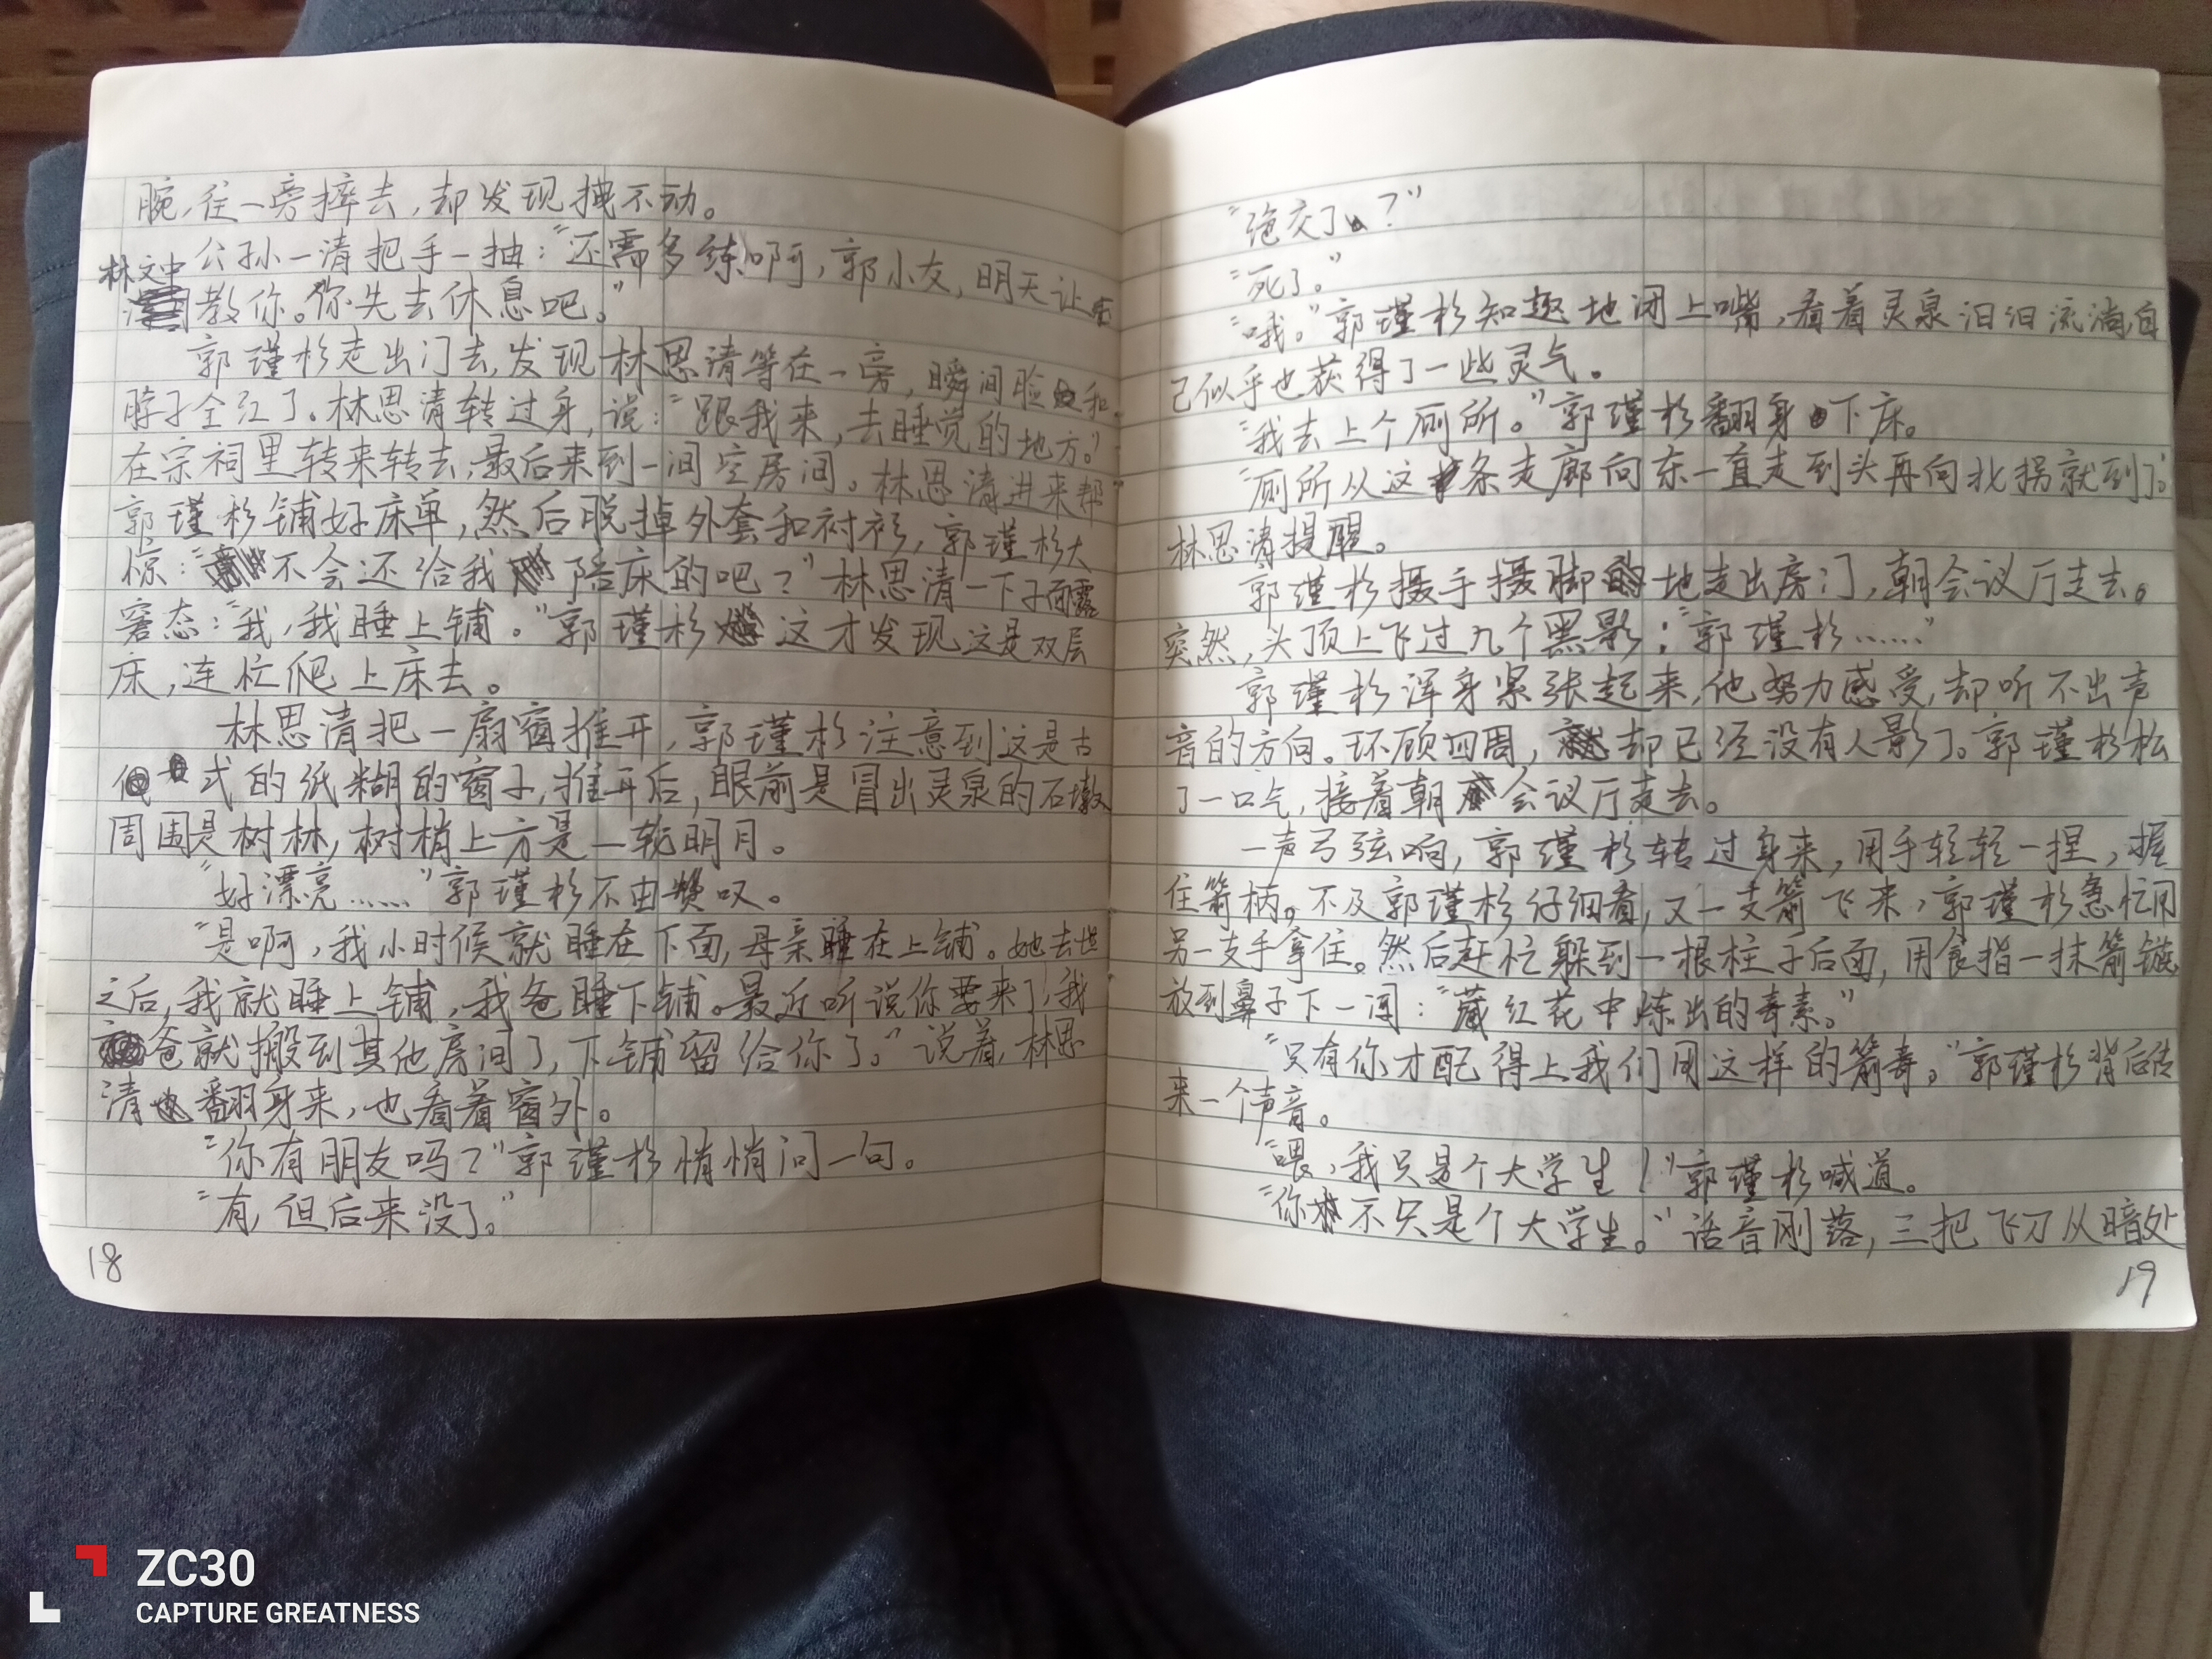 腕，往一旁摔去，却发现拽不动。
公孙一清把手一抽：“还需多练啊，郭小友，明天让
林文中教你。你先去休息吧。”
郭瑾杉走出门去，发现林思清等在一旁，瞬间脸和
脖子全红了。林思清转过身，说：“跟我来，去睡觉的地方。”
在宗祠里转来转去，最后来到一间空房间。林思清进来帮
郭瑾杉铺好床单，然后脱掉外套和衬衫，郭瑾杉大
惊：“不会还给我陪床的吧？”林思清一下子面露
窘态：“我，我睡上铺。”郭瑾杉这才发现这是双层
床，连忙爬上床去。
林思清把一扇窗推开，郭瑾杉注意到这是古
式的纸糊的窗子，推开后，眼前是冒出灵泉的石墩
周围是树林，树梢上方是一轮明月。
“好漂亮……”郭瑾杉不由赞叹。
“是啊，我小时候就睡在下面，母亲睡在上铺。她去世
之后，我就睡上铺，我爸睡下铺。最近听说你要来了，我
爸就搬到其他房间了，下铺留给你了。”说着，林思
清翻身来，也看着窗外。
“你有朋友吗？”郭瑾杉悄悄问一句。
“有，但后来没了。”
18
“绝交了？”
“死了。”
“哦。”郭瑾杉知趣地闭上嘴，看着灵泉汩汩流淌，自
己似乎也获得了一些灵气。
“我去上个厕所。”郭瑾杉翻身下床。
“厕所从这条走廊向东一直走到头再向北拐就到了。”
林思清提醒。
郭瑾杉摄手摄脚地走出房门，朝会议厅走去。
突然，头顶上飞过九个黑影：“郭瑾杉……”
郭瑾杉浑身紧张起来，他努力感受，却听不出声
音的方向。环顾四周，却已经没有人影了。郭瑾杉松
了一口气，接着朝会议厅走去。
一声弓弦响，郭瑾杉转过身来，用手轻轻一捏，握
住箭柄。不及郭瑾杉仔细看，又一支箭飞来，郭瑾杉急忙用
另一支手拿住。然后赶忙躲到一根柱子后面，用食指一抹箭镞
放到鼻子下一闻：“藏红花中炼出的毒素。”
“只有你才配得上我们用这样的箭毒。”郭瑾杉背后传
来一个声音。
“喂，我只是个大学生！”郭瑾杉喊道。
“你不只是个大学生。”话音刚落，三把飞刀从暗处
19
ZC30
CAPTURE GREATNESS